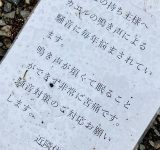 の持ち主様へ
カエルの鳴き声による
騒音に毎年悩まされてい
ます。
鳴き声が煩くて眠ること
ができず非常に苦痛です。
騒音対策のご対応お願い
します。
近隣住